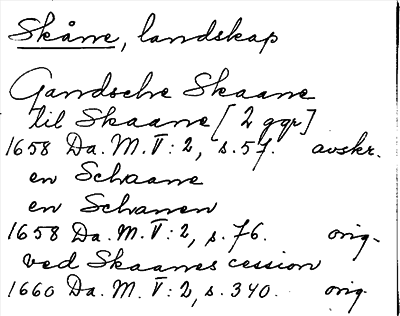 Skåne, landskap
Gandsche Skaane
til Skaane [2 ggr]
1658 Da. M. V: 2, s. 57. avskr.
en Schaane
en Schanen
1658 Da. M. V: 2, s. 76. orig.
ved Skaanes cession
1660 Da. M. V: 2, s. 340. orig.